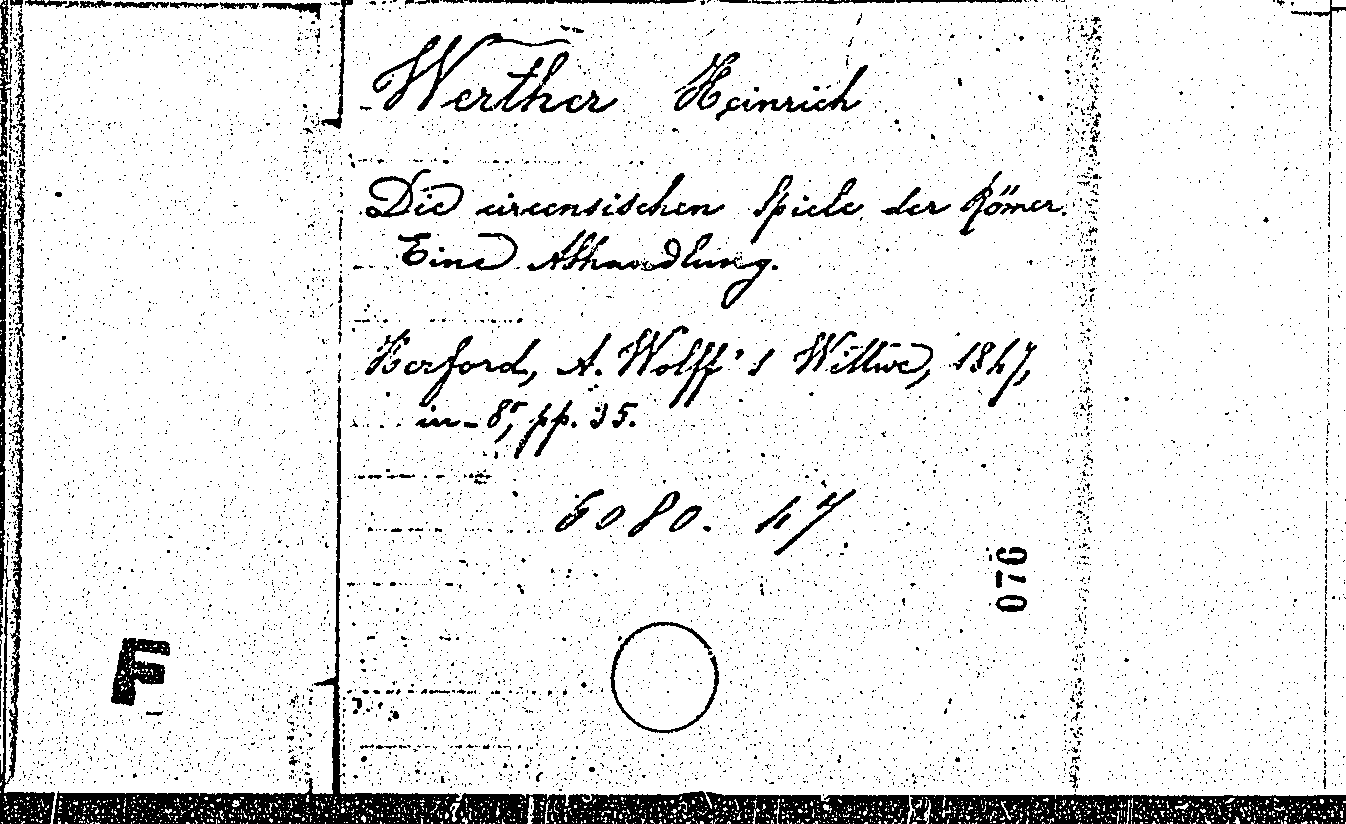 Werther Heinrich
Die circensischen Spiele der Römer.
Eine Abhandlung.
Herford, A. Wolff's Wittwe, 1847,
in-8°, pp. 35.
6080. 47
076
F